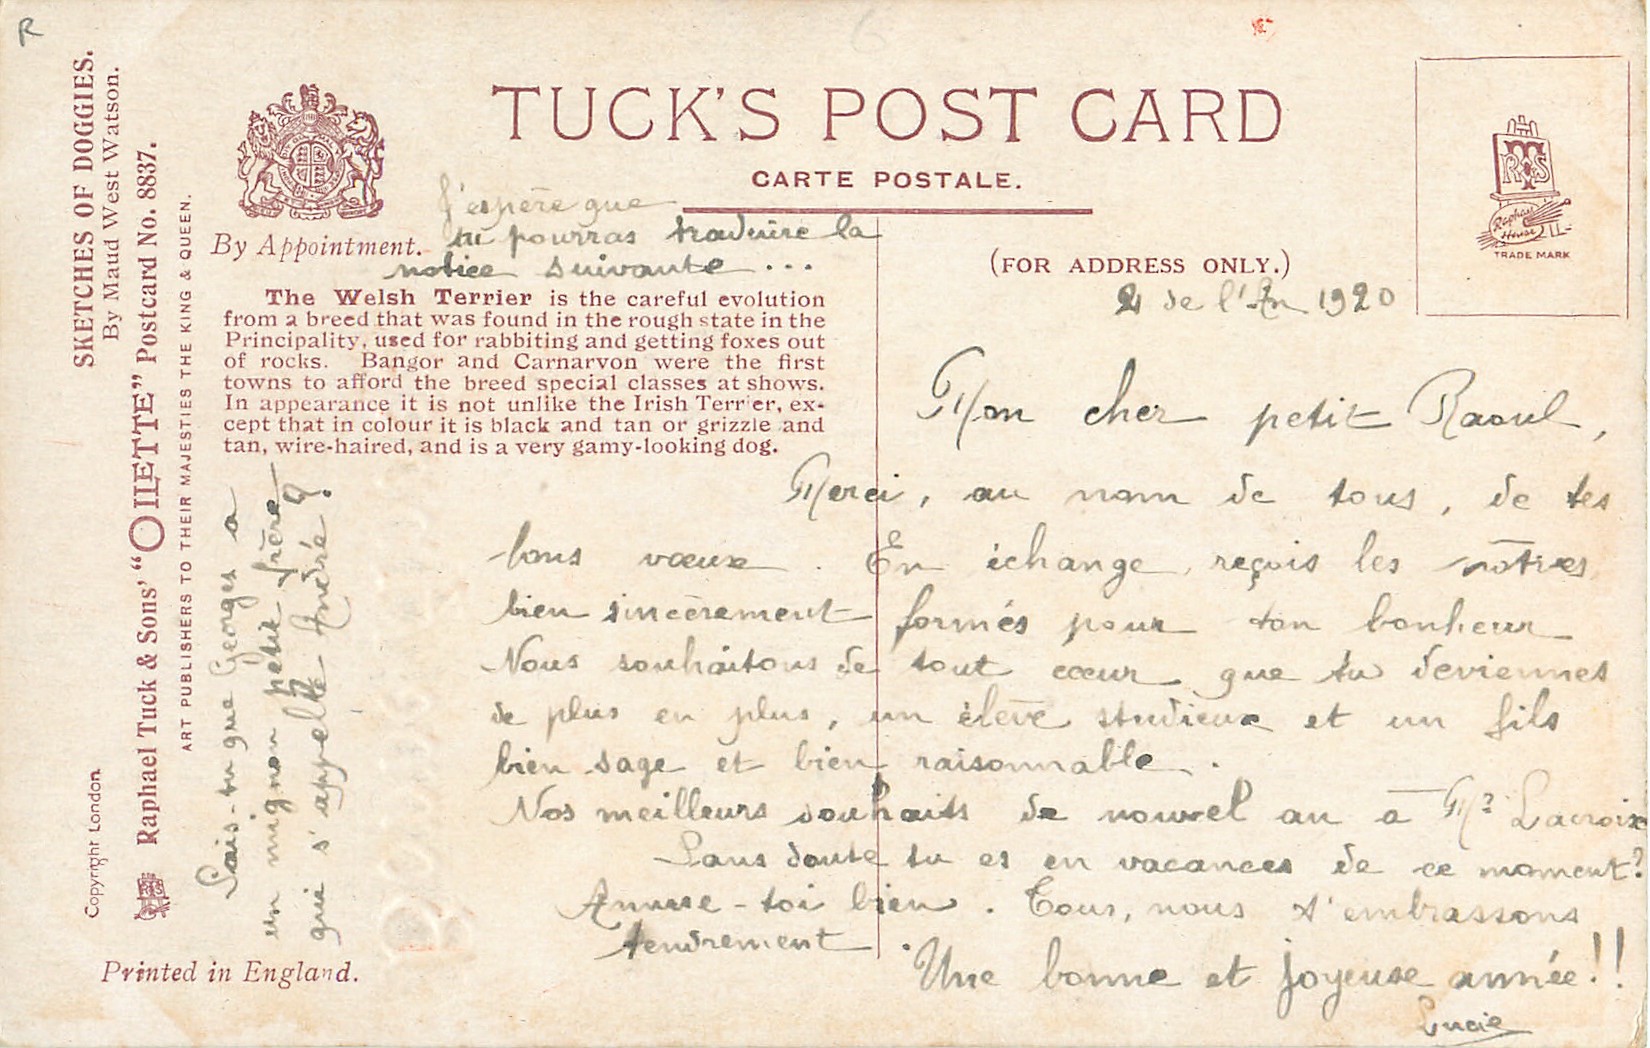 R
SKETCHES OF DOGGIES.
By Maud West Watson.
Raphael Tuck & Sons' "OILETTE" Postcard No. 8837.
ART PUBLISHERS TO THEIR MAJESTIES THE KING & QUEEN.
Copyright London.
By Appointment.
Printed in England.
TUCK'S POST CARD
CARTE POSTALE.
(FOR ADDRESS ONLY.)
RTS
Raphael
House
TRADE MARK
J'espère que
tu pourras traduire la
notice suivante ...
The Welsh Terrier is the careful evolution
from a breed that was found in the rough state in the
Principality, used for rabbiting and getting foxes out
of rocks. Bangor and Carnarvon were the first
towns to afford the breed special classes at shows.
In appearance it is not unlike the Irish Terrier, ex-
cept that in colour it is black and tan or grizzle and
tan, wire-haired, and is a very gamy-looking dog.
de l'An 1920
Mon cher petit Raoul,
Merci, au nom de tous, de tes
bons vœux. En échange, reçois les nôtres
bien sincèrement formés pour ton bonheur
Nous souhaitons de tout cœur que tu deviennes
de plus en plus, un élève studieux et un fils
bien sage et bien raisonnable.
Nos meilleurs souhaits de nouvel an à Mr Lacroix
Sans doute tu es en vacances de ce moment?
Amuse-toi bien. Tous, nous t'embrassons
tendrement.
Une bonne et joyeuse année!!
Lucie
Sais-tu que Georges a
un mignon petit frère
qui s'appelle André?